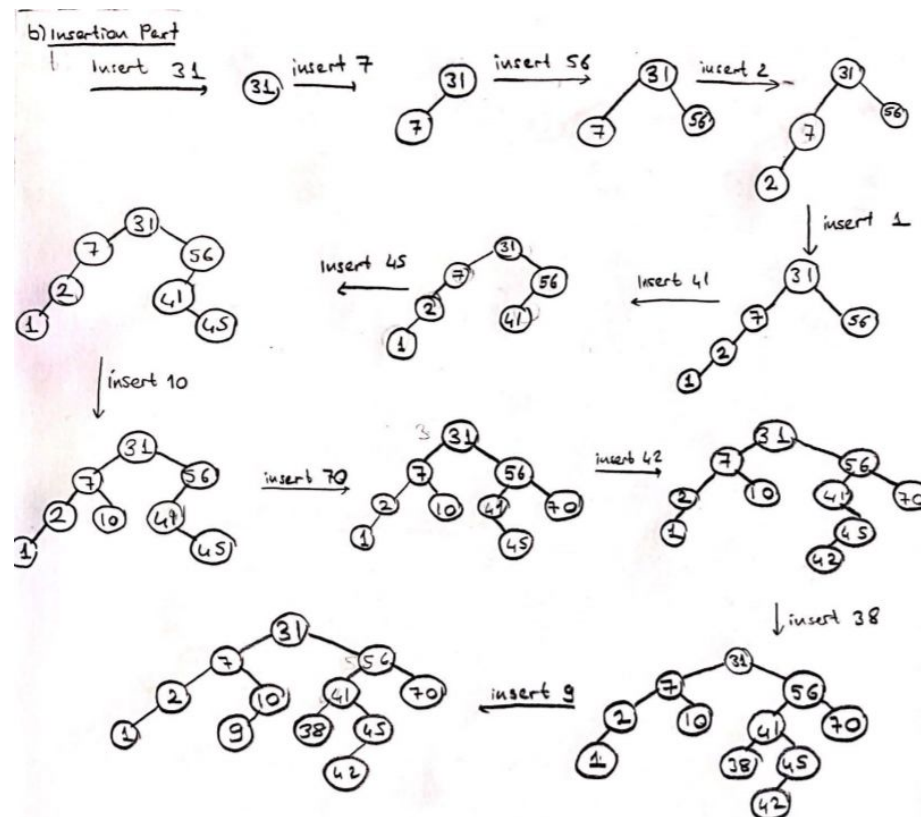 b) Insertion Part
Insert 31
31
insert 7
31
7
insert 56
31
7 56
insert 2
31
7 56
2
insert 1
31
7 56
2
1
Insert 41
31
7 56
2 41
1
Insert 45
31
7 56
2 41
1 45
insert 10
31
7 56
2 10 41
1 45
insert 70
31
7 56
2 10 41 70
1 45
insert 42
31
7 56
2 10 41 70
1 45
42
insert 38
31
7 56
2 10 41 70
1 38 45
42
insert 9
31
7 56
2 10 41 70
1 9 38 45
42